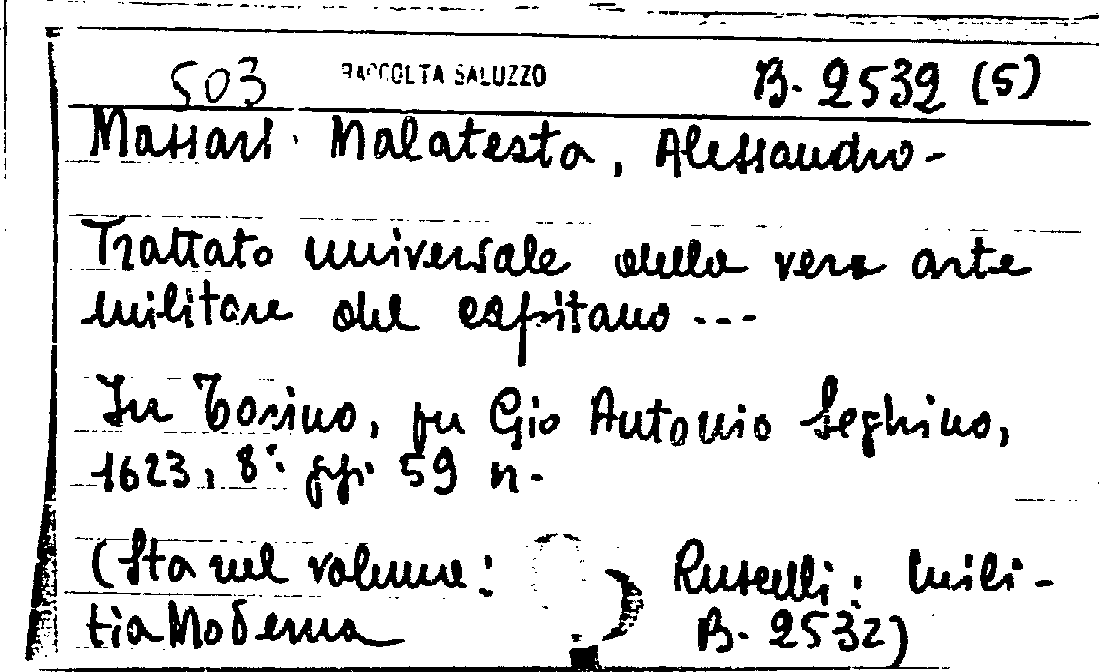 503 RACCOLTA SALUZZO B. 2532 (5)
Massari Malatesta, Alessandro-
Trattato universale della vera arte
militare del capitano ---
In Torino, per Gio Antonio Seghino,
1623, 8° pp. 59 n.
(Sta nel volume: Ruscelli: Mili-
tia Moderna B. 2532)